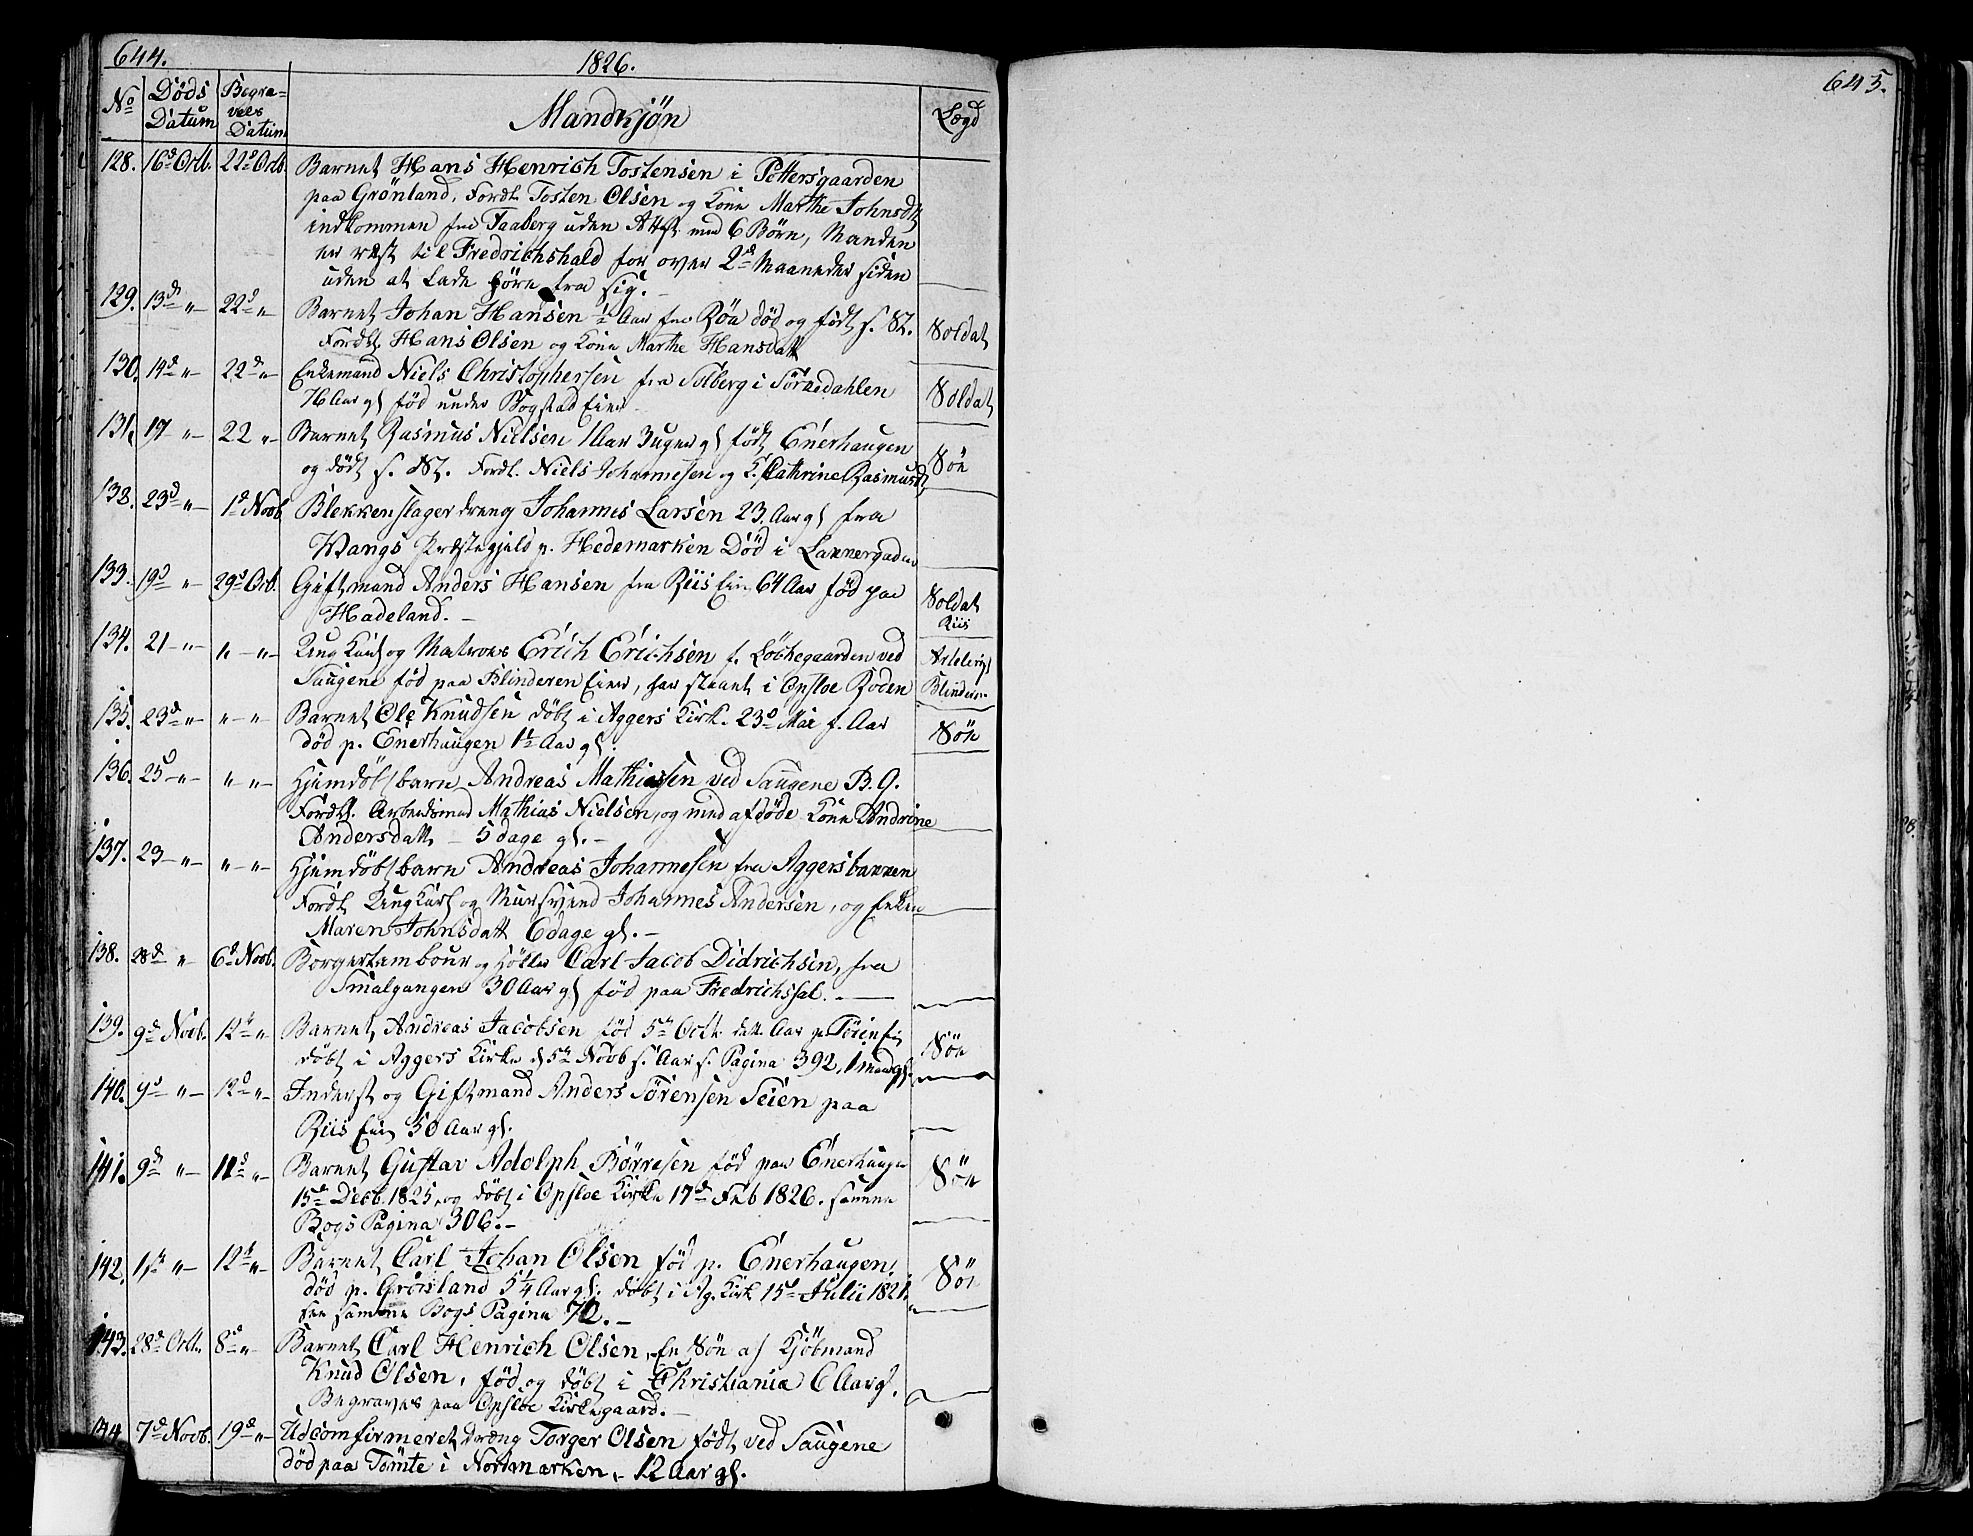 644.
1826.
No Döds Datum Begravels Datum Mandkjön Lægd
128. 16d Octb. 22d Octb. Barnet Hans Henrich Tostensen i Pettersgaarden
paa Grönland, Fordt Tosten Olsen og Kone Marthe Johnsdt
indkommen fra Faaberg uden Attest med 6 Börn, Manden
er rest til Fredrichshald for over 2de Maaneder siden
uden at lade höre fra sig. –
129. 13d " 22d " Barnet Johan Hansen ½ Aar fra Röa död og födt s. St.
Fordt Hans Olsen og Kone Marthe Hansdatt Soldat
130. 14d " 22d " Enkemand Niels Christophersen fra Solberg i Sörkedahlen
76 Aar gl född under Bogstad Eier Soldat
131. 17 " 22 " Barnet Rasmus Nielsen 1 Aar 3 uger gl födt Enerhaugen
og dödt s. St. Fordt. Niels Johannesen og K. Cathrine Rasmusdt Sön
132. 23d " 1d Novb Blekkenslagerdreng Johannes Larsen 23 Aar gl fra
Wangs Præstegjeld p. Hedemarken Död i Lakkergaden
133. 19d " 29d Octb. Giftmand Anders Hansen fra Riis Eier 64 Aar föd paa
Hadeland. – Soldat Riis
134. 21 " " " Ung Karl og Matros Erich Erichsen f. Löchegaarden ved
Saugene föd paa Blinderen Eier, har staaet i Opsloe Roden Blindern
135. 23d " " " Barnet Ole Knudsen döbt i Aggers Kirk. 23d Mai f. Aar
död p. Enerhaugen 1½ Aar gl. Sön
136. 25d " " " Hjemdöbt barn Andreas Mathiassen ved Saugene B. G.
Fordt. Arbeidsmd Mathias Nielsen, og med afdöde Kone Andrine
Andersdatt – 5 dage gl. –
137. 23 " " " Hjemdöbt barn Andreas Johannesen fra Aggersbakken
Fordt Ung Karl og Mursvend Johannes Andersen, og Enken
Maren Johnsdatt 6 dage gl. –
138. 28d " 6d Novb. Borgertambour og Carl Jacob Didrichsen, fra
Smalgangen 30 Aar gl föd paa Fredrichshal.
139. 9d Novb. 12t " Barnet Andreas Jacobsen föd 5te Octb. dett. Aar p. Töien Ei
döbt i Aggers Kirke d 5te Novb s. Aar s. Pagina 392, 1 maan gl. Sön
140. 9d " 12d " Inderst og Giftmand Anders Sörensen Seien paa
Riis Eier 50 Aar gl.
141. 9d " 11d " Barnet Gustav Adolph Börresen föd paa Enerhaugen
15de Decb. 1825, og döbt i Opsloe Kirke 17d Feb 1826. samme
Bogs Pagina 306. – Sön
142. 1ste " 12t " Barnet Carl Johan Olsen föd p. Enerhaugen,
död p. Grönland 5¼ Aar gl. döbt i Ag. Kirk 15d Julii 1821.
see samme Bogs Pagina 70. – Sön
143. 28d Octb. 8d " Barnet Carl Henrich Olsen, En Sön af Kjöbmand
Knud Olsen, föd og döbt i Christiania 6 Aar gl.
Begraves paa Opsloe Kirkegaard. –
144. 7d Novb. 19d " Uconfirmeret dreng Torger Olsen födt ved Saugene
död paa Tömte i Nordmarken, – 12 Aar gl.
645.